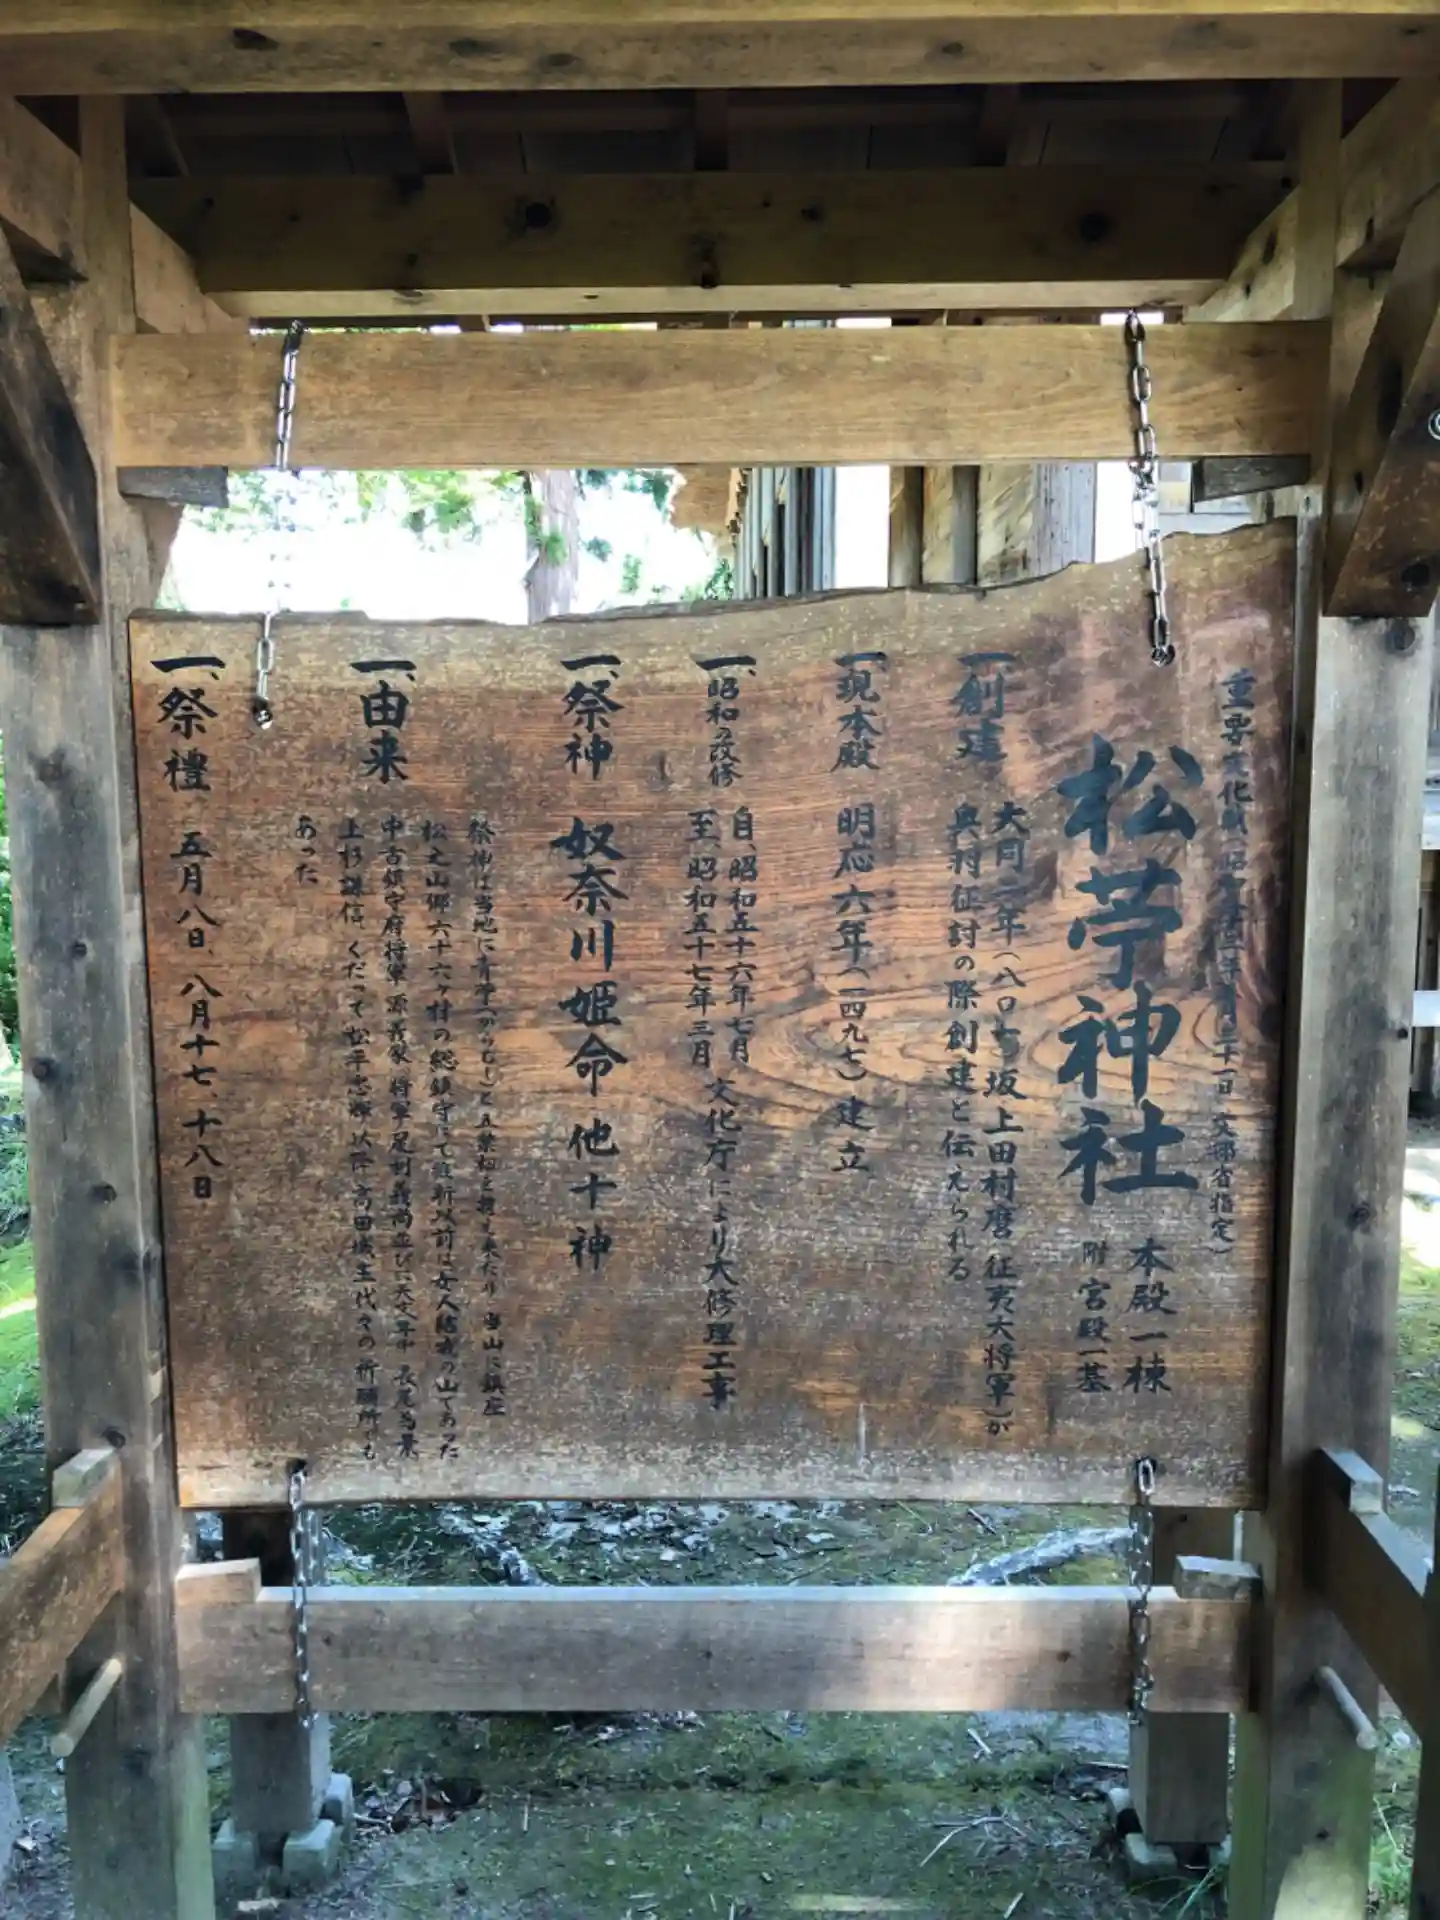 重要文化財(昭和五十三年五月三十一日 文部省指定)
松苧神社
本殿一棟
附 宮殿一基
一、創建
大同二年(八〇七)坂上田村麿(征夷大将軍)が
奥羽征討の際創建と伝えられる
一、現本殿 明応六年(一四九七)建立
一、昭和の改修
自、昭和五十六年七月
至、昭和五十七年三月
文化庁により大修理工事
一、祭神 奴奈川姫命 他十神
一、由来
祭神は当地に青苧(からむし)と五葉松を携え来たり 当山に鎮座
松之山郷六十六ヶ村の総鎮守にて維新以前は女人結界の山であった
中古鎮守府将軍 源義家 将軍足利義尚並びに天文年中 長尾為景
上杉謙信、くだって松平忠輝以降 高田城主代々の祈願所でも
あった
一、祭禮 五月八日、八月十七、十八日